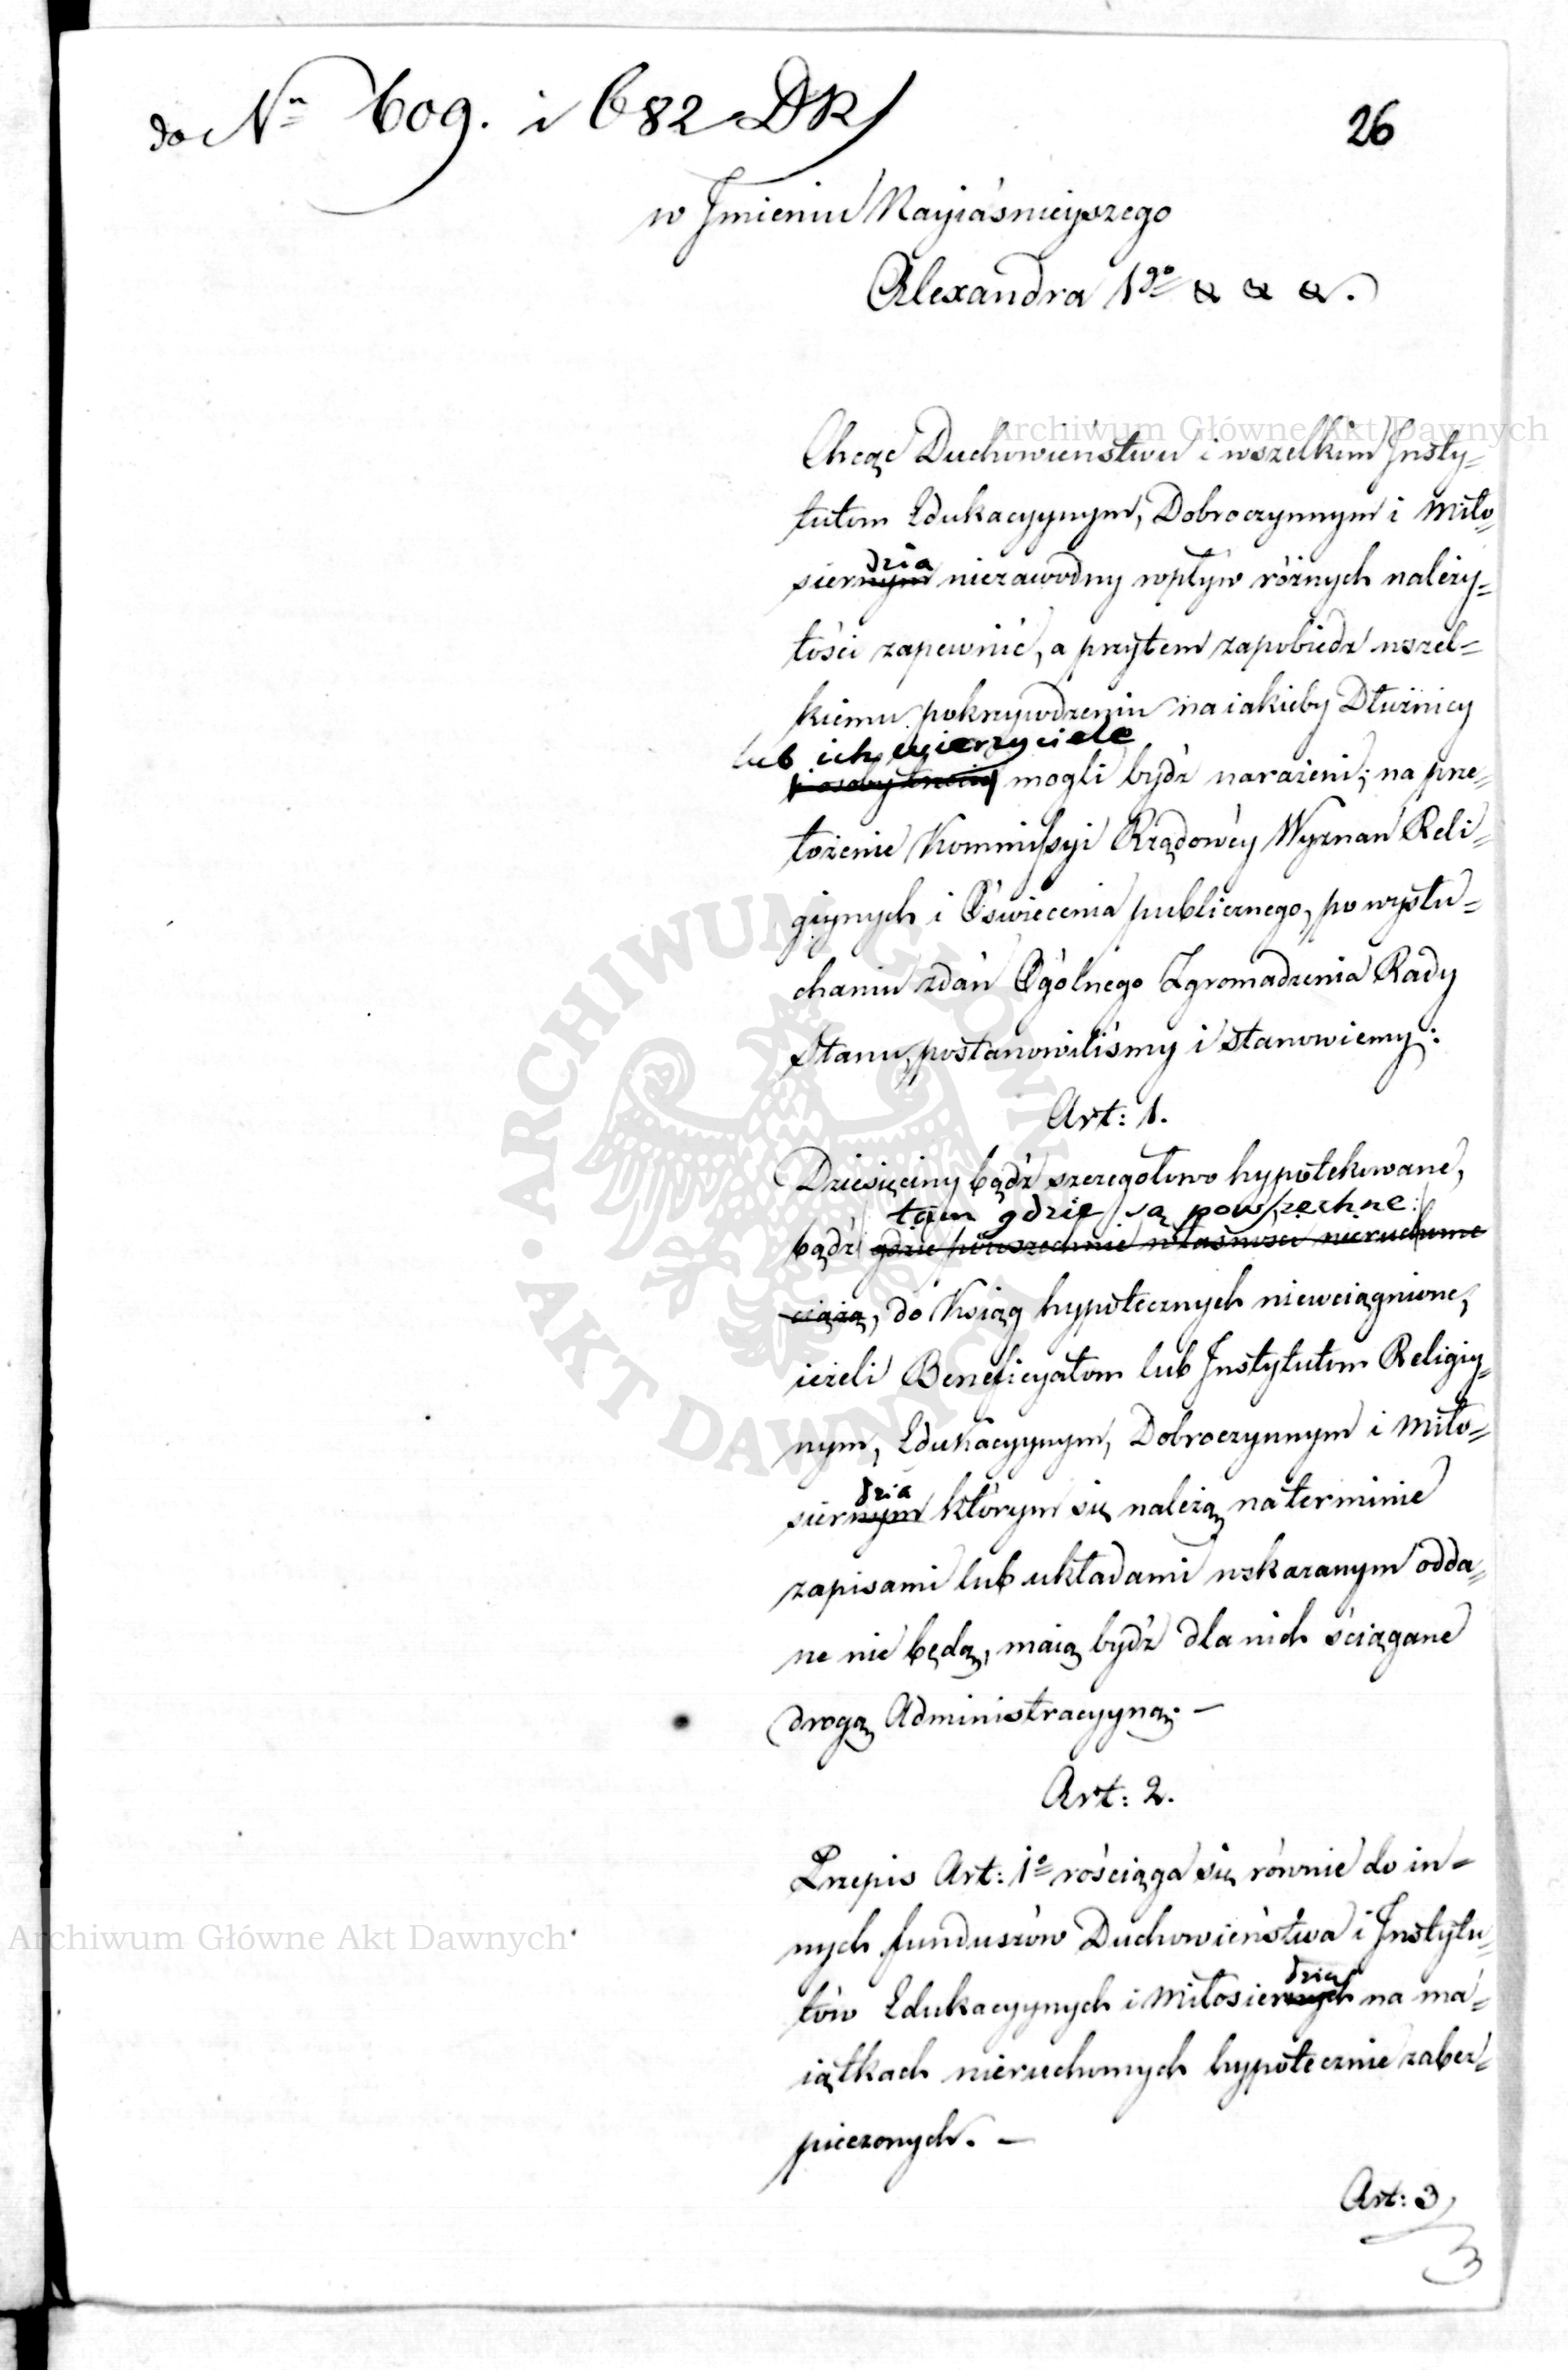 do Nrᵒ 609. i 682 DR
26
w Jmieniu Nayiaśnieyszego
Alexandra 1go & & &.
Archiwum Główne Akt Dawnych
Chcąc Duchowieństwu i wszelkim Insty=
tutom Edukacyynym, Dobroczynnym i Miło=
dzia
siernym niezawodny wpływ różnych należy=
tości zapewnić, a przytem zapobiedz wszel=
kiemu pokrzywdzeniu na iakieby Dłużnicy
lub ich wierzyciele
i osoby trzecie mogli bydź narażeni; na prze=
łożenie Kommissyi Rządowéy Wyznań Reli=
giynych i Oświecenia publicznego, po wysłu=
chaniu zdań Ogólnego Zgromadzenia Rady
Stanu, postanowiliśmy i stanowiemy:
Art: 1.
Dziesięciny bądź szczegółowo hypotekowane,
tam gdzie są powszechne
bądź gdzie powszechnie własności nieruchome
ciążą, do Ksiąg hypotecznych niewciągnione,
ieżeli Beneficyatom lub Instytutom Religiy=
nym, Edukacyynym, Dobroczynnym i Miło=
dzia
siernym którym się należą, na terminie
zapisami lub układami wskazanym odda=
ne nie będą, maią bydź dla nich ściągane
drogą Administracyyną. —
Art: 2.
Przepis Art: 1o rościąga się równie do in=
nych funduszów Duchowieństwa i Instytu=
dzia
tów Edukacyynych i Miłosiernych na ma=
iątkach nieruchomych hypotecznie zabez=
pieczonych. —
Art: 3
3
ARCHIWUM GŁÓWNE · AKT DAWNYCH ·
Archiwum Główne Akt Dawnych